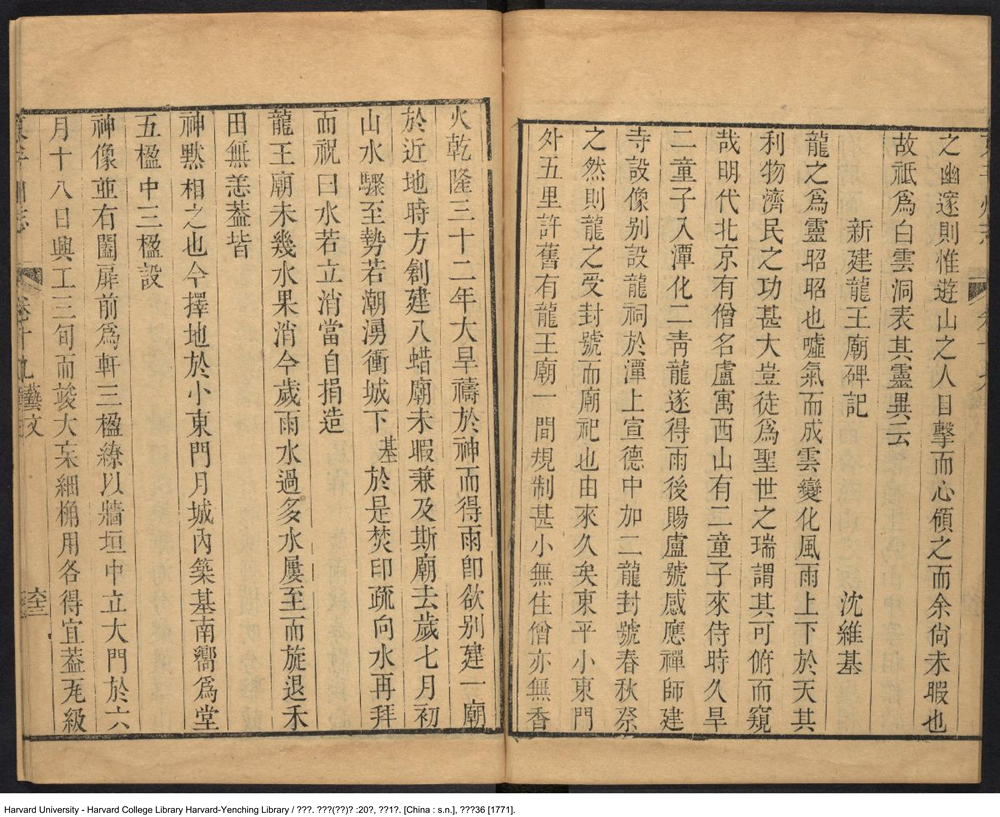 之幽邃則惟遊山之人目擊而心領之而余尙未暇也
故祗爲白雲洞表其靈異云
新建龍王廟碑記　沈維基
龍之爲靈昭昭也噓氣而成雲變化風雨上下於天其
利物濟民之功甚大豈徒爲聖世之瑞謂其可俯而窺
哉明代北京有僧名盧寓西山有二童子來侍時久旱
二童子入潭化二靑龍遂得雨後賜盧號感應禪師建
寺設像别設龍祠於潭上宣德中加二龍封號春秋祭
之然則龍之受封號而廟祀也由來久矣東平小東門
外五里許舊有龍王廟一間規制甚小無住僧亦無香
火乾隆三十二年大旱禱於神而得雨卽欲别建一廟
於近地時方創建八蜡廟未暇兼及斯廟去歲七月初
山水驟至勢若潮湧衝城下基於是焚印疏向水再拜
而祝曰水若立消當自捐造
龍王廟未幾水果消今歲雨水過多水屢至而旋退禾
田無恙葢皆
神黙相之也今擇地於小東門月城內築基南嚮爲堂
五楹中三楹設
神像並右闔扉前爲軒三楹繚以牆垣中立大門於六
月十八日興工三旬而竣大杗細桷用各得宜葢瓦級
東平州志　卷十九　藝文
Harvard University - Harvard College Library Harvard-Yenching Library / ???. ???(??)? :20?, ??1?. [China : s.n.], ???36 [1771].